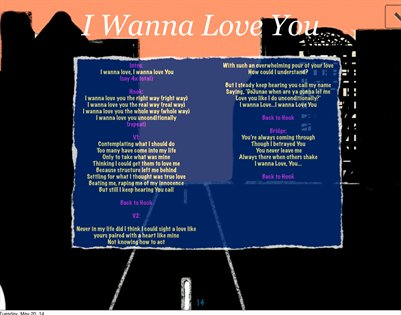 I Wanna Love You
Intro:
I wanna love, I wanna love You
(say 4x total)
Hook:
I wanna love you the right way (right way)
I wanna love you the real way (real way)
I wanna love you the whole way (whole way)
I wanna love you unconditionally
(repeat)
V1:
Contemplating what I should do
Too many have come into my life
Only to take what was mine
Thinking I could get them to love me
Because structure left me behind
Settling for what I thought was true love
Beating me, raping me of my innocence
But still I keep hearing You call
Back to Hook
V2:
Never in my life did I think I could sight a love like
yours paired with a heart like mine
Not knowing how to act
With such an overwhelming pour of your love
How could I understand?
But I steady keep hearing you call my name
Saying, when are ya gonna let me
Love you like I do unconditionally?
I wanna Love...I wanna Love You
Back to Hook
Bridge:
You're always coming through
Though I betrayed You
You never leave me
Always there when others shake
I wanna Love, You...
Back to Hook
14
Tuesday, May 20, 14